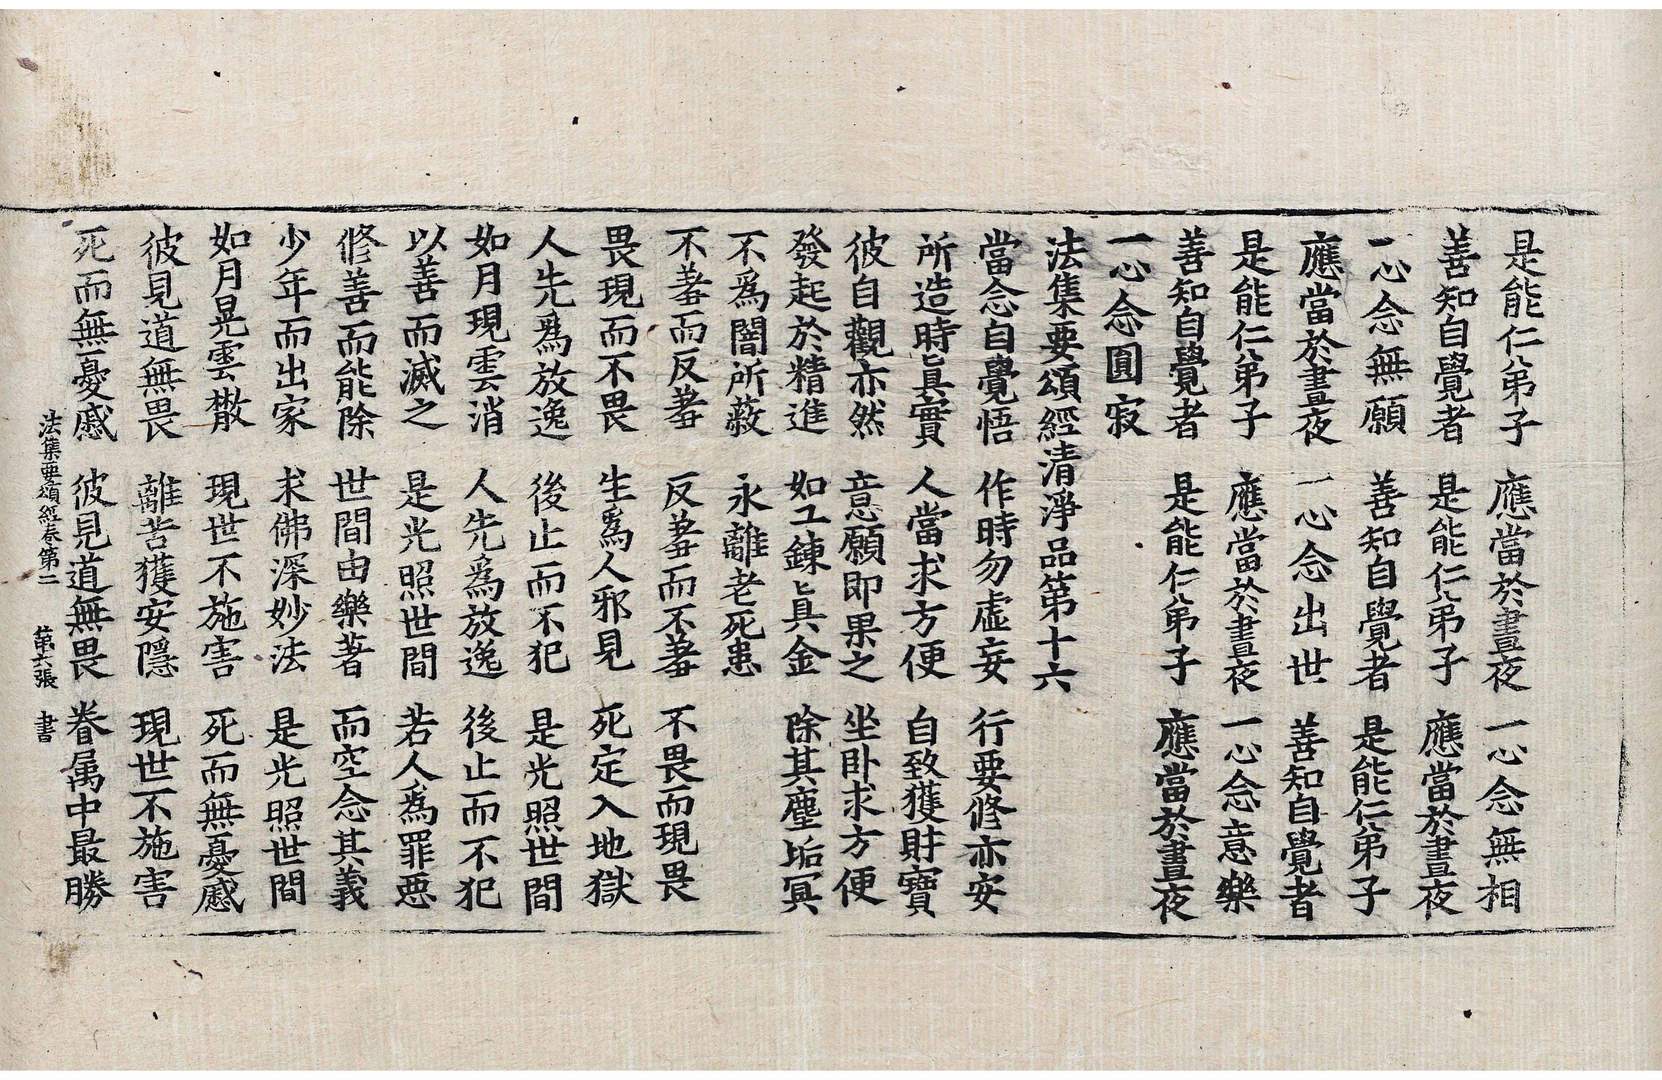 是能仁弟子　應當於晝夜　一心念無相
善知自覺者　是能仁弟子　應當於晝夜
一心念無願　善知自覺者　是能仁弟子
應當於晝夜　一心念出世　善知自覺者
是能仁弟子　應當於晝夜　一心念意樂
善知自覺者　是能仁弟子　應當於晝夜
一心念圓寂
法集要頌經清淨品第十六
當念自覺悟　作時勿虛妄　行要修亦安
所造時真實　人當求方便　自致獲財寶
彼自觀亦然　意願即果之　坐臥求方便
發起於精進　如工鍊真金　除其塵垢冥
不為闇所蔽　永離老死患
不羞而反羞　反羞而不羞　不畏而現畏
畏現而不畏　生為人邪見　死定入地獄
人先為放逸　後止而不犯　是光照世間
如月現雲消　人先為放逸　後止而不犯
以善而滅之　是光照世間　若人為罪惡
修善而能除　世間由樂著　而空念其義
少年而出家　求佛深妙法　是光照世間
如月晃雲散　現世不施害　死而無憂慼
彼見道無畏　離苦獲安隱　現世不施害
死而無憂慼　彼見道無畏　眷屬中最勝
法集要頌經卷第二　第六張　書